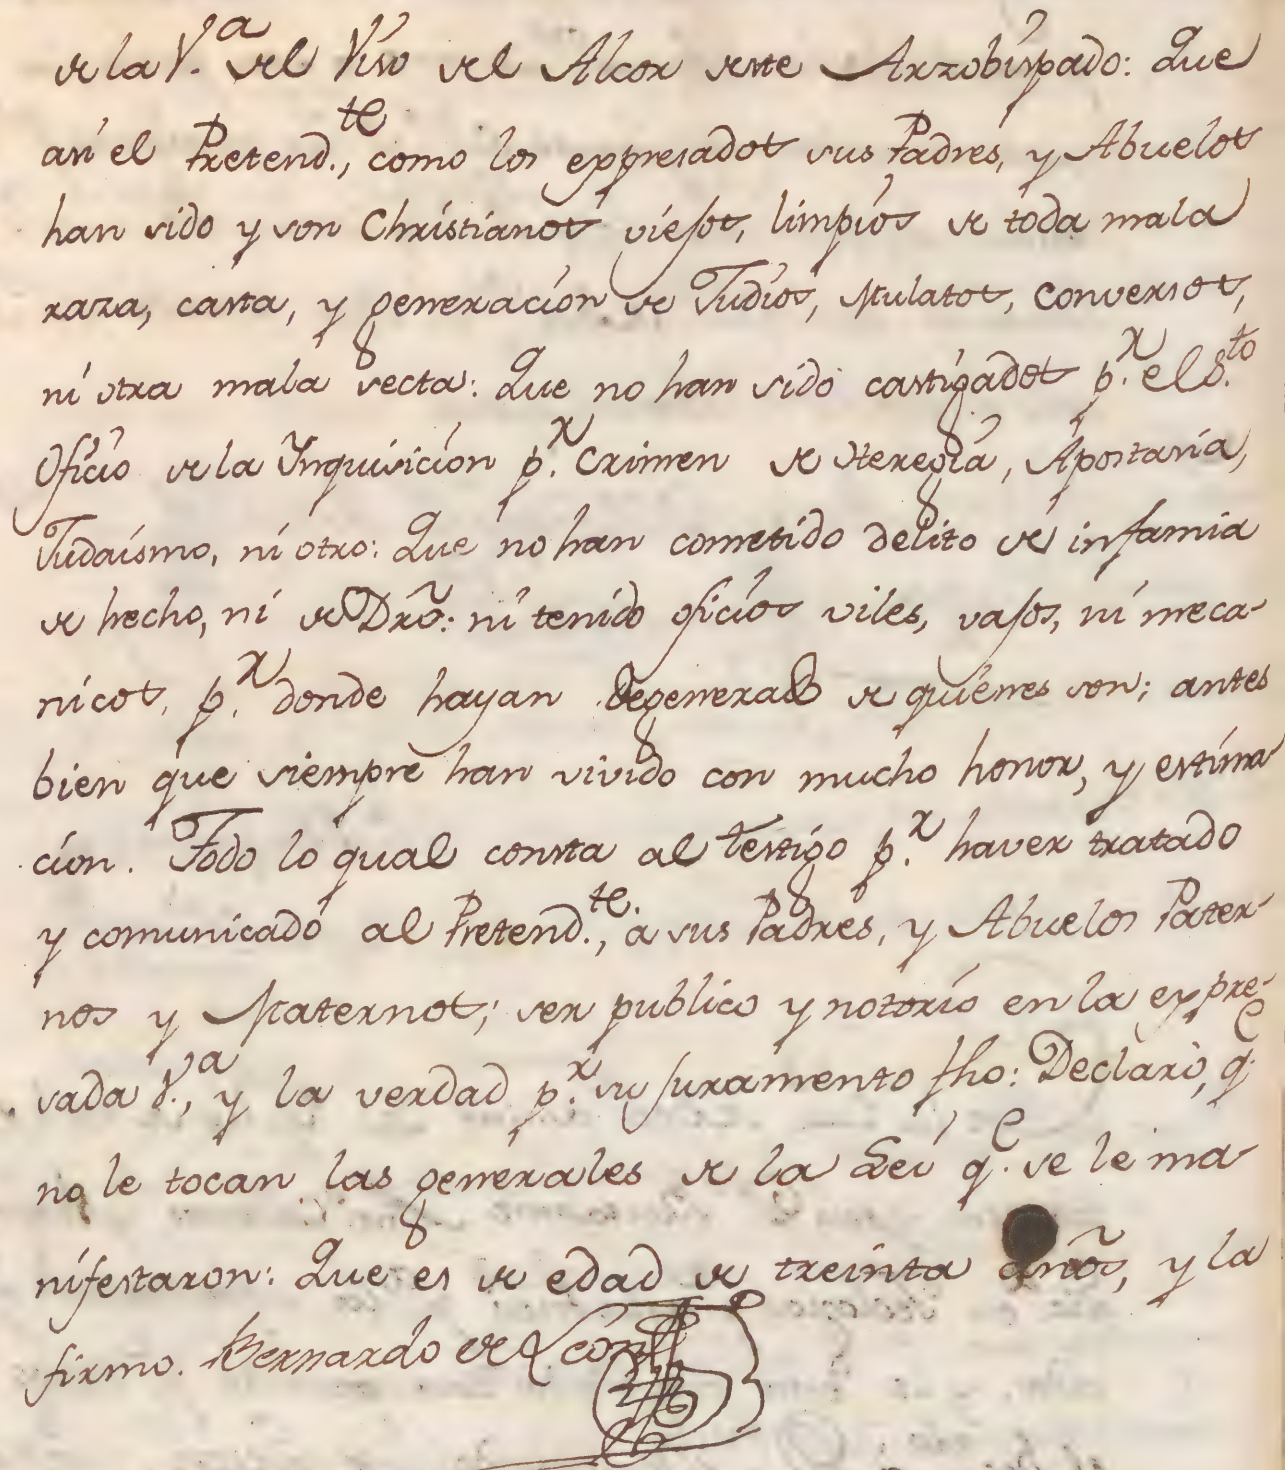 de la V.ª del Viso del Alcor deste Arzobispado: Que
asi el Pretend.te, como los expresados sus Padres, y Abuelos
han sido y son Christianos viejos, limpios de toda mala
raza, casta, y generacion de Judios, Mulatos, Conversos,
ni otra mala secta: Que no han sido castigados p.r el S.to
Oficio de la Inquisicion p.r Crimen de Heregía, Apostasía,
Judaismo, ni otro: Que no han cometido delito de infamia
de hecho, ni de Dró: ni tenido oficios viles, vajos, ni meca-
nicos, p.r donde hayan degenerado de quienes son; antes
bien que siempre han vivido con mucho honor, y estima-
cion. Todo lo qual consta al testigo p.r haver tratado
y comunicado al Pretend.te, a sus Padres, y Abuelos Pater-
nos y Maternos; ser publico y notorio en la expre-
sada V.ª, y la verdad p.r su juramento fho: Declaró, q.e
no le tocan las generales de la Lei q.e se le ma-
nifestaron: Que es de edad de treinta años, y la
firmo. Bernardo de Leon